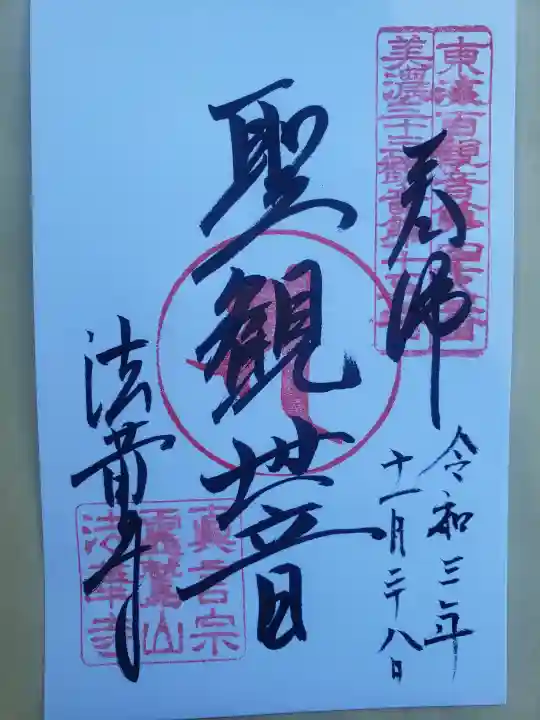 東海百観音第
美濃三十三観音第十
奉拝
令和三年
十一月二十八日
聖観世音
法華寺
真言宗
靈鷲山
法華寺